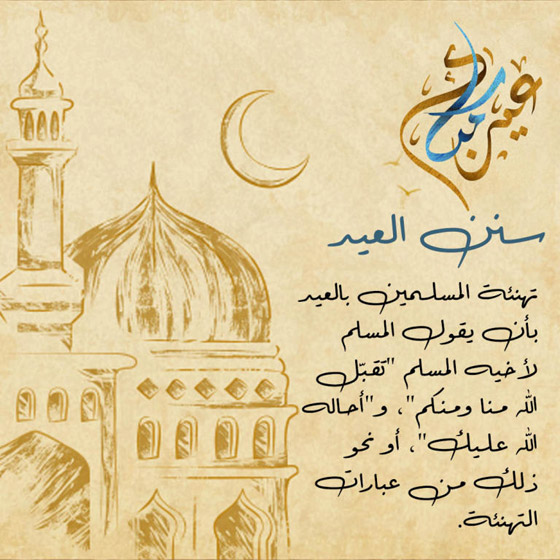 عيد مبارك
سنن العيد
تهنئة المسلمين بالعيد
بأن يقول المسلم
لأخيه المسلم "تقبّل
الله منا ومنكم"، و"أحاله
الله عليك"، أو نحو
ذلك من عبارات
التهنئة.